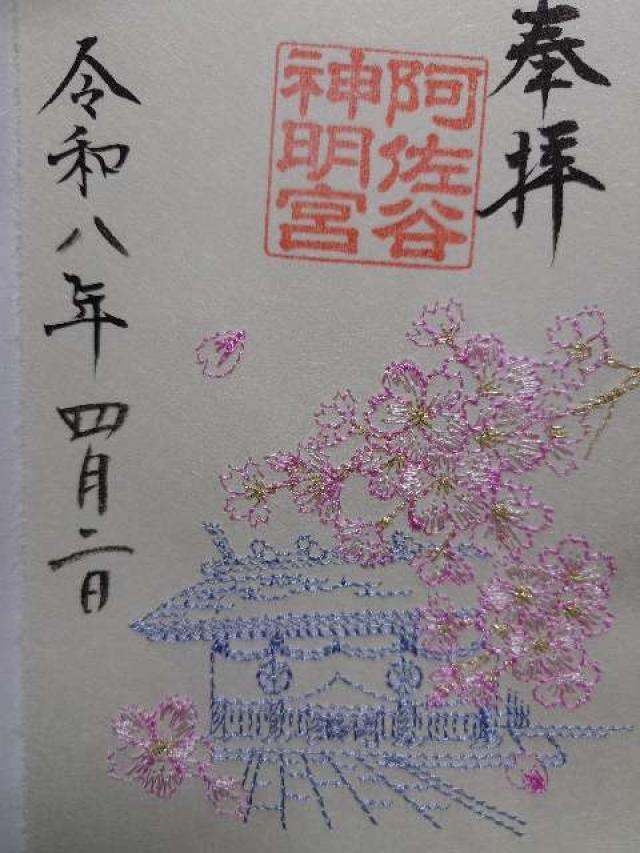 奉拝
阿佐谷
神明宮
令和八年四月二日